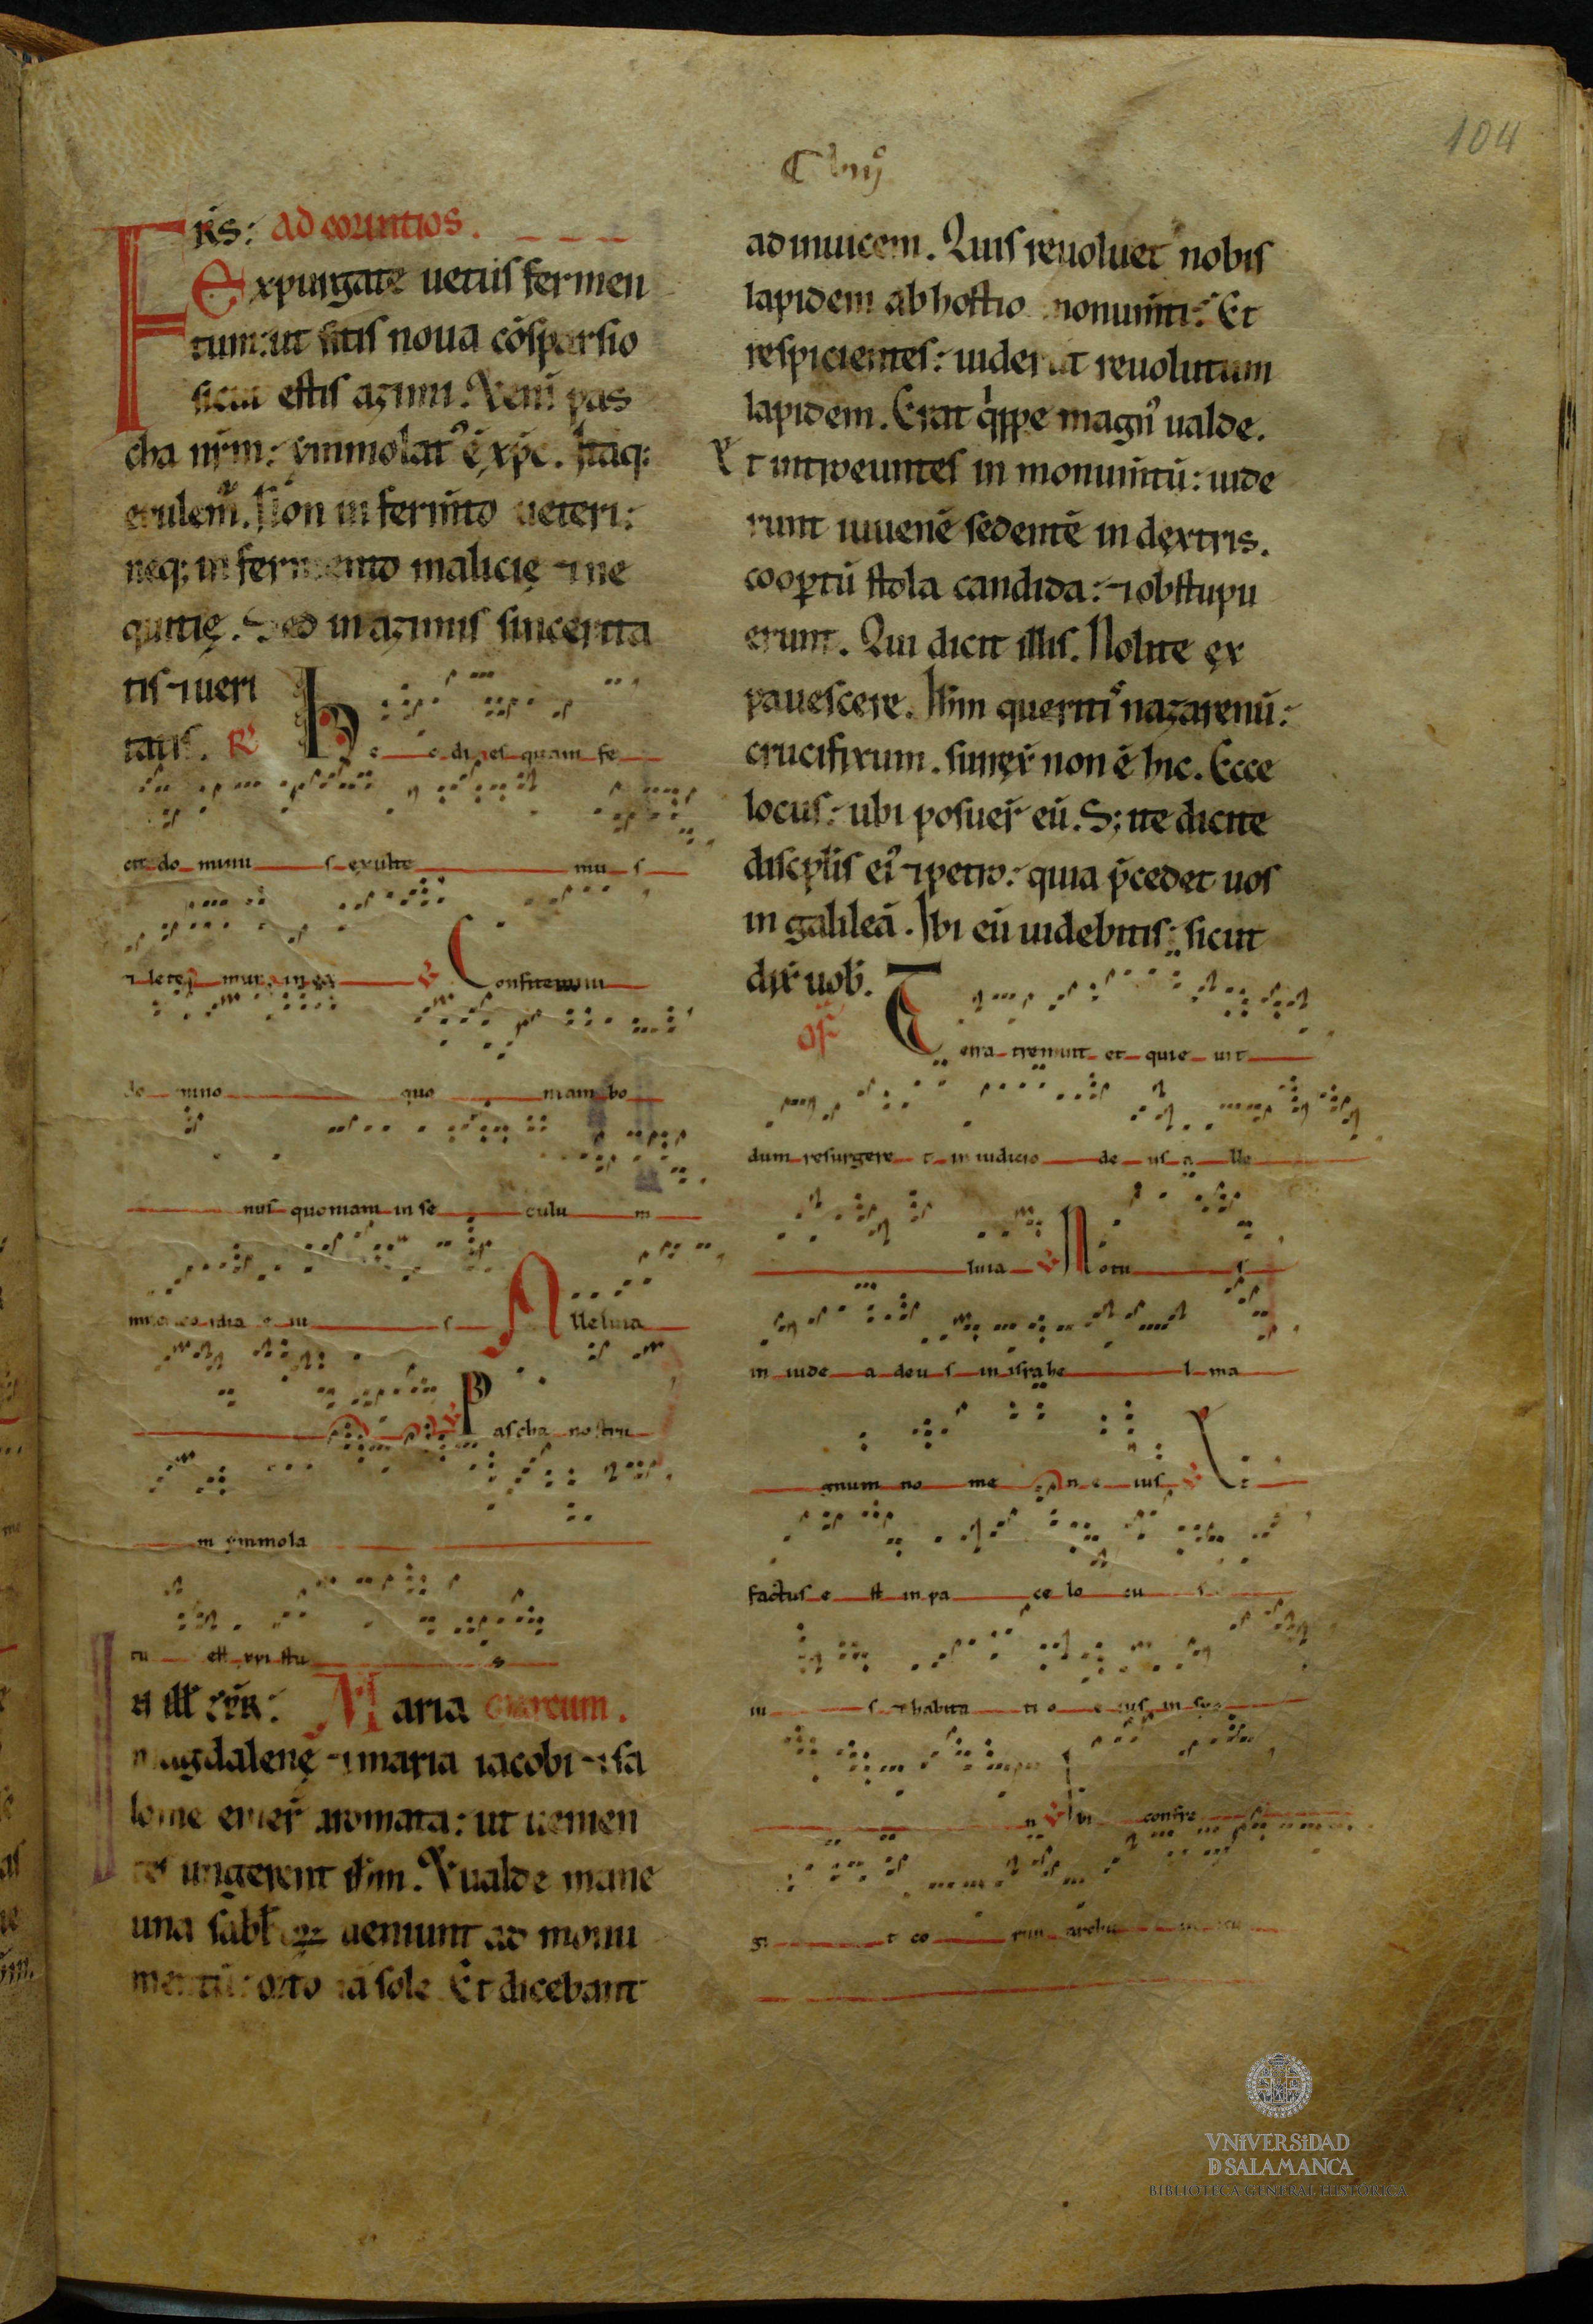 104
FRS: ad corintios.
Expurgate uetus fermen
tum: ut sitis noua cōsparsio
sicut estis azimi. Xenī pas
cha nrm̄: ymmolatꝰ ē xp̄c. Itaq;
epulem̄. Non in ferm̄to ueteri:
neq; in fermento malicię ⁊ ne
quitię. Sed in azimis sincerita
tis ⁊ ueri
tatis. R̄ He c dies quam fe
cit do minu s exulte mu s
⁊ lete mur in ea ℣ Confitemini
do mino quo niam bo
nus quoniam in se culu m
misericordia e iu s Alleluia
℣ Pascha nostru
m ymmola
tu est xpi stu s
In ill̄ tp̄r: Maria marcum.
magdalenę ⁊ maria iacobi ⁊ sa
lome emer̄ aromata: ut uenien
tes ungerent ih̄m. Xualde mane
una sabb̄ ueniunt ad monu
mentū: orto iā sole. Et dicebant
ad inuicem. Quis reuoluet nobis
lapidem ab hostio monum̄ti: Et
respicientes: uiderūt reuolutum
lapidem. Erat q̇ppe magnꝰ ualde.
Et introeuntes in monum̄tū: uide
runt iuuenē sedentē in dextris.
coop̄tū stola candida: ⁊ obstupu
erunt. Qui dicit illis. Nolite ex
pauescere. Ih̄m queritiꝰ nazarenū:
crucifixum. surrex̄ non ē hic. Ecce
locus: ubi posuer̄ eū. S; ite dicite
discipl̄is eiꝰ ⁊ petro: quia p̄cedet uos
in galileā. Ibi eū uidebitis: sicut
dix̄ uob̄.
of̄ Terra tremuit et quie uit
dum resurgere t in iudicio de us a lle
luia ℣ Notu s
in iude a deu s in israhe l ma
gnum no me n e ius ℣ Et
factus e st in pa ce lo cu s
iu s ⁊ habita ti o e ius in syo
n ℣ Ibi confre
gi t co rnu arcuu
VNiVERSiDAD
D SALAMANCA
BIBLIOTECA GENERAL HISTÓRICA